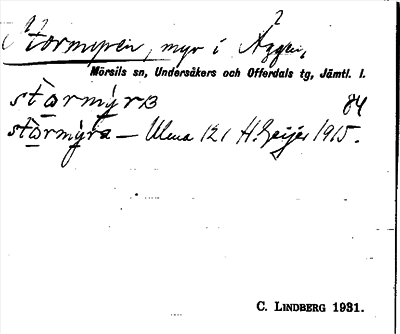 Stormyren, myr i Äggen,
Mörsils sn, Undersåkers och Offerdals tg, Jämtl. l.
stormyrɜ 84
stormyra – Ulena 121 H. Geijer 1915.
C. LINDBERG 1931.